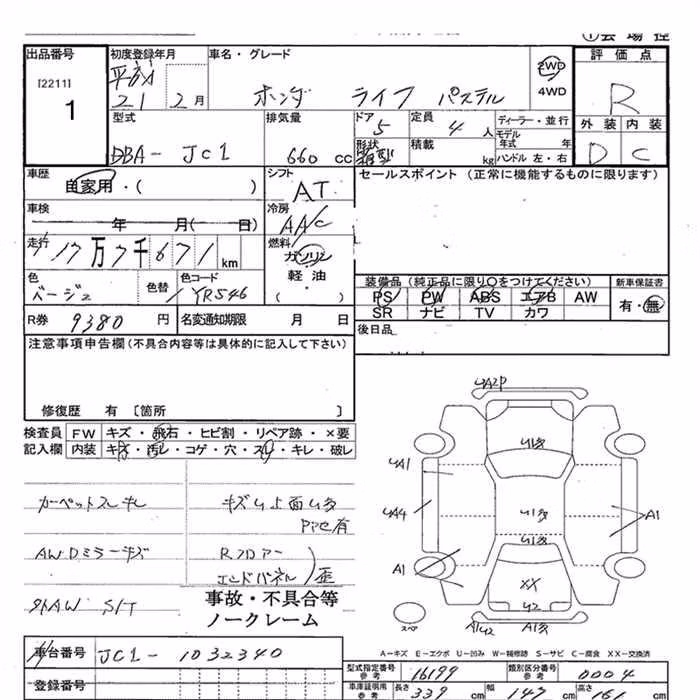 出品番号
[2211]
1
初度登録年月
平成
21 2月
車名・グレード
ホンダ ライフ パステル
2WD
4WD
評価点
R
型式
DBA- JC1
排気量
660 cc
ドア
5
定員
4 人
形状
箱型
積載
kg
ディーラー・並行
モデル
年式 年
ハンドル 左・右
外装 内装
D C
車歴
自家用・( )
シフト
AT
セールスポイント (正常に機能するものに限ります)
車検
年 月( 日)
冷房
AA/C
走行
17万7千671 km
燃料
ガソリン
軽油
・
( )
色
ベージュ
色替
色コード
YR546
装備品 (純正品に限り○をつけてください)
PS PW ABS エアB AW
SR ナビ TV カワ
新車保証書
有・無
R券 9380 円
名変通知期限 月 日
後日品
注意事項申告欄(不具合内容等は具体的に記入して下さい)
修復歴 有 [箇所 ]
検査員
記入欄
FW キズ・飛石・ヒビ割・リペア跡・×要
内装 キズ・汚レ・コゲ・穴・スレ・キレ・破レ
AWDミラーキズ
外AW S/T
キズU上面U多
PP色有
Rフロアー
エンドパネル
歪
事故・不具合等
ノークレーム
UA2P
U1多
UA1
UA4
U1多
A1
U1多
A1
XX
U2
スペア
A1U2
A1多
A-キズ E-エクボ U-凹み W-補修跡 S-サビ C-腐食 XX-交換済
車台番号
JC1- 1032340
登録番号
型式指定番号
参考
16199
類別区分番号
参考
0004
車庫証明用
参考
長さ
339 cm
幅
147 cm
高さ
161 cm